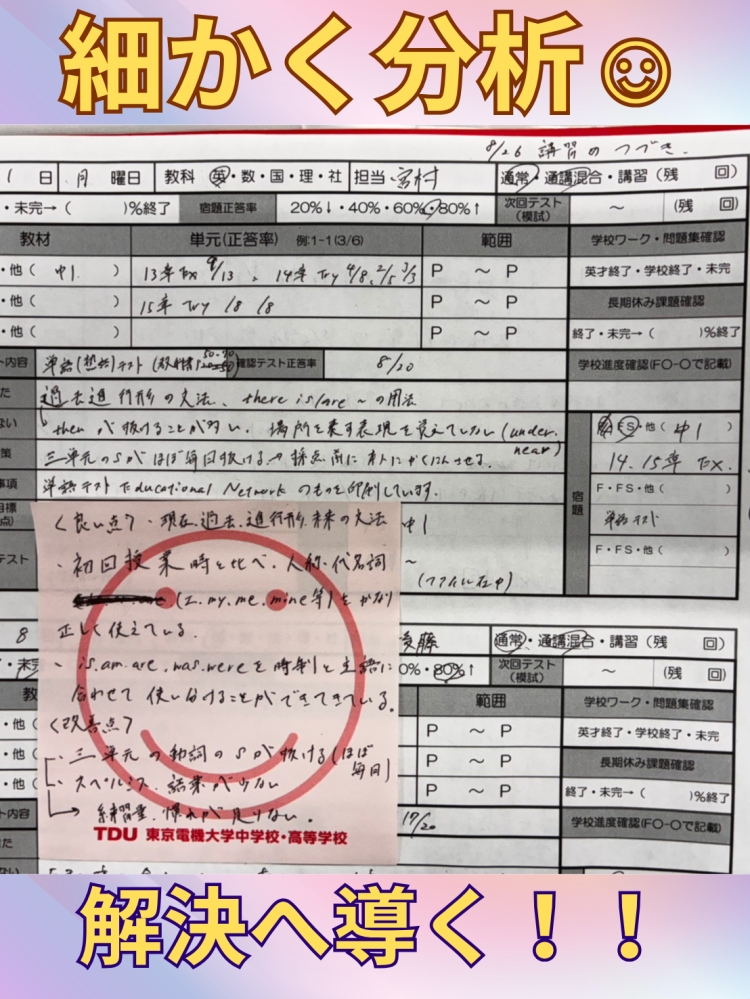 細かく分析☺
8/26 講習のつづき.
1 日 月 曜日 教科 英・数・国・理・社 担当 宮村 通常・通講混合・講習(残 回)
・未完→( )%終了 宿題正答率 20%↓・40%・60%・80%↑ 次回テスト(模試) ～ (残 回)
教材 単元(正答率) 例:1-1(3/6) 範囲 学校ワーク・問題集確認
・他( 中1. ) 13章 Ex 9/13 、 14章 Try 4/8、2/5 3/3 P ～ P 英才終了・学校終了・未完
・他( ) 15章 Try /8 /8 P ～ P 長期休み課題確認
・他( ) P ～ P 終了・未完→( )%終了
ト内容 確認テスト正答率 8/20 学校進度確認(FO-Oで記載)
た 過去進行形の文法、there is/are ～の用法
ない then が抜けることが多い、場所を表す表現を覚えていない(under. near) ・FS・他( 中1 )
策 三単元のsがほぼ毎回抜ける→採点前に本人にかくにんさせる. 14.15章 Ex.
事項 単語テストEducational Networkのものを印刷しています. 宿題 F・FS・他( )
単語テスト
F・FS・他( )
中1
～
(ファイル在中)
<良い点>・現在.過去.進行形.未来の文法
・初回授業時と比べ、人称・代名詞
(I.my.me.mine等)をかなり
正しく使えている.
・is.am.are.was.wereを時制と主語に
合わせて使い分けることができてきている。
<改善点>
・三単元の動詞のsが抜ける(ほぼ毎回)
・スペルミス
→ 練習量、慣れが足りない.
TDU 東京電機大学中学校・高等学校
8 後藤 通常・通講混合・講習(残 回)
・未完 0%・80%↑ 次回テスト(模試) ～ (残 回)
教 範囲 学校ワーク・問題集確認
・他( P ～ P 英才終了・学校終了・未完
・他( P ～ P 長期休み課題確認
・他( P ～ P 終了・未完→( )%終了
ト内容 17/20 学校進度確認(FO-Oで記載)
解決へ導く！！